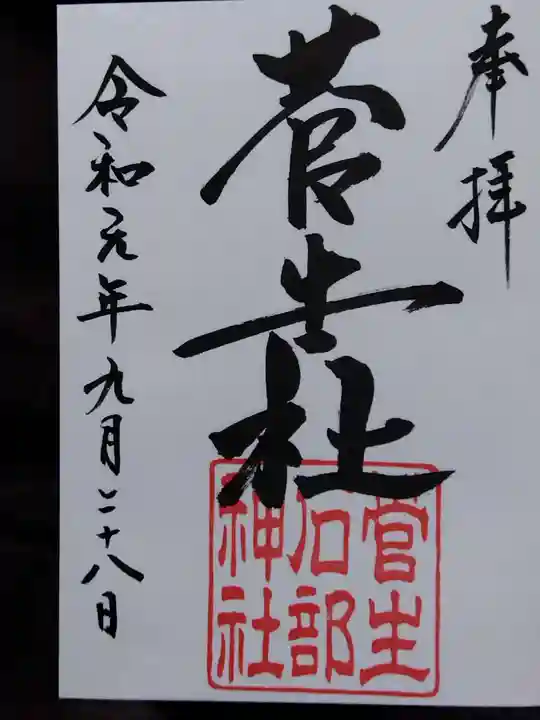 奉拝
菅生社
令和元年九月二十八日
菅生
石部
神社